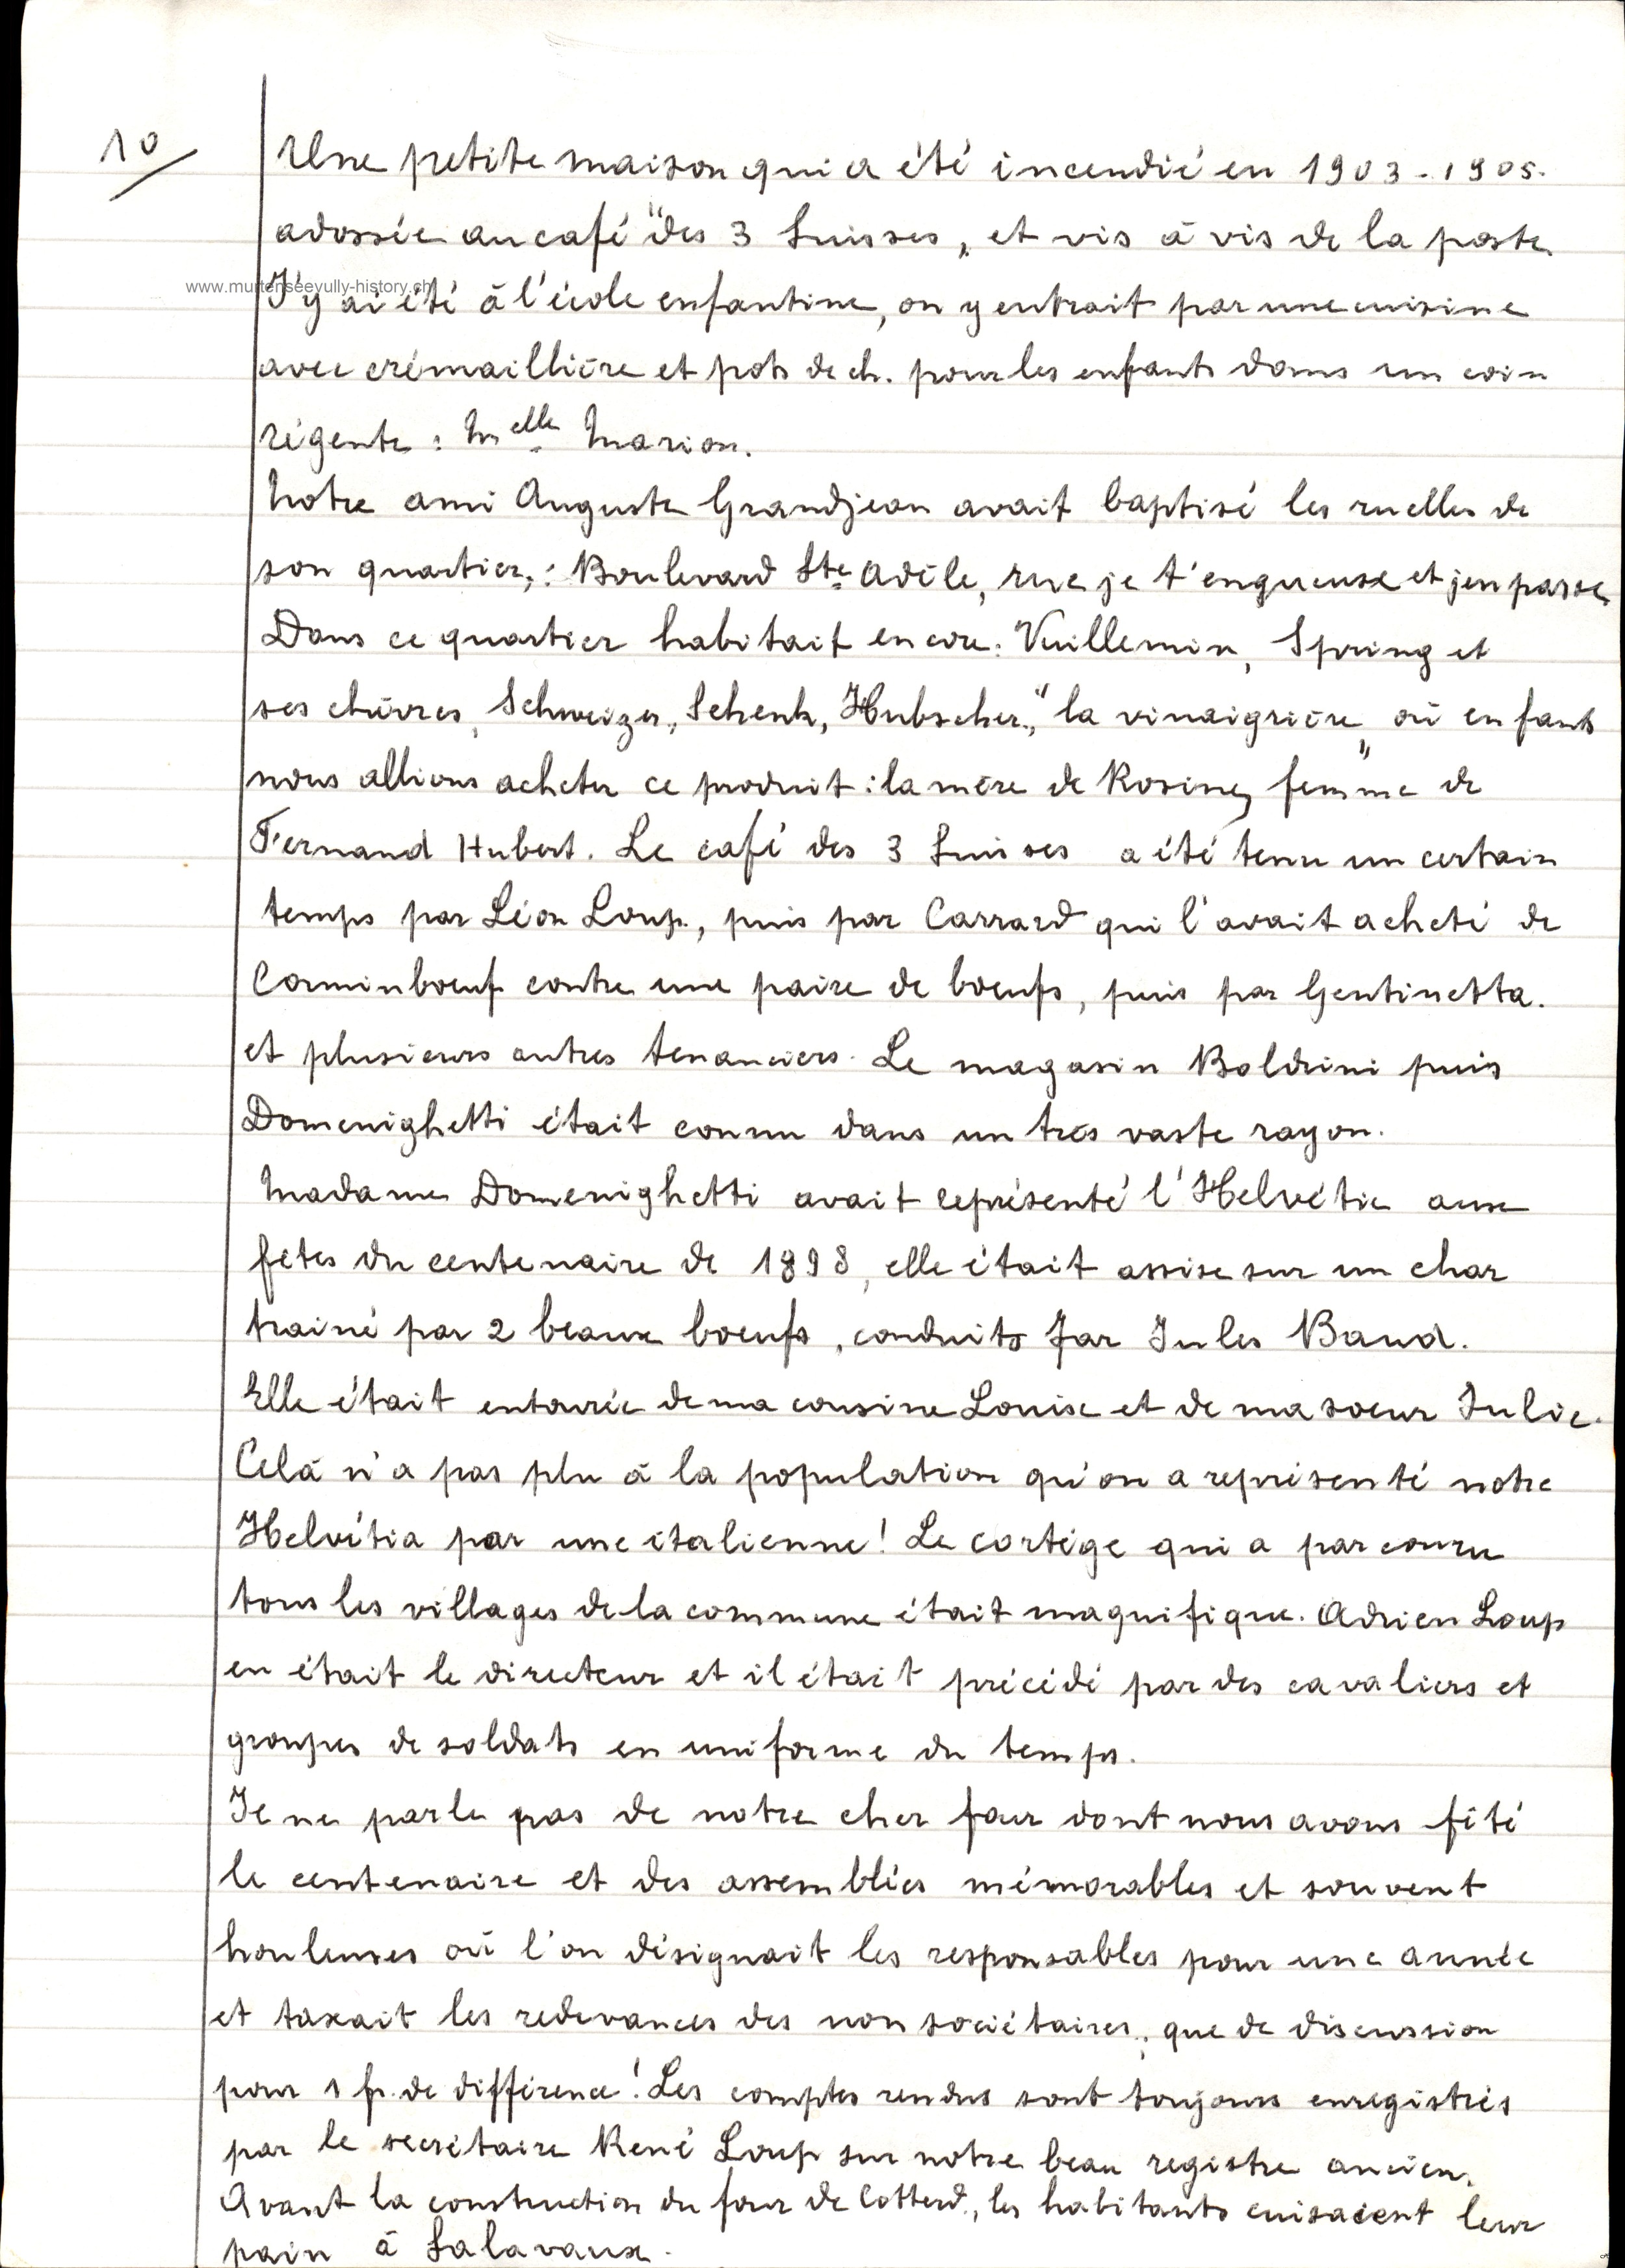 10
Une petite maison qui a été incendié en 1903-1905.
adossée au café "des 3 Suisses" et vis à vis de la poste
www.murtenseevully-history.ch
J'y ai été à l'école enfantine, on y entrait par une cuisine
avec crémaillière et pots de ch. pour les enfants dans un coin
régente: Melle Marion.
Notre ami Auguste Grandjean avait baptisé les ruelles de
son quartier,: Boulevard Ste Adèle, rue je t'engueuse et j'en passe
Dans ce quartier habitait encore: Vuillemin, Spring et
ses chèvres, Schweizer, Schenk, Hubscher, "la vinaigrière" où enfants
nous allions acheter ce produit: la mère de Rosine, femme de
Fernand Hubert. Le café des 3 Suisses a été tenu un certain
temps par Léon Loup, puis par Carrard qui l'avait acheté de
Corminboeuf contre une paire de boeufs, puis par Gentinetta.
et plusieurs autres tenanciers. Le magasin Boldrini puis
Domenighetti était connu dans un très vaste rayon.
Madame Domenighetti avait représenté l'Helvétie aux
fetes du centenaire de 1898, elle était assise sur un char
trainé par 2 beaux boeufs, conduits par Jules Baud.
Elle était entourée de ma cousine Louise et de ma soeur Julie.
Celà n'a pas plu à la population qu'on a représenté notre
Helvétia par une italienne! Le cortège qui a parcouru
tous les villages de la commune était magnifique. Adrien Loup
en était le directeur et il était précédé par des cavaliers et
groupes de soldats en uniforme du temps.
Je ne parle pas de notre cher four dont nous avons fêté
le centenaire et des assemblées mémorables et souvent
houleuses où l'on désignait les responsables pour une année
et taxait les redevances des non sociétaires; que de discussion
pour 1 fr. de différence! Les comptes rendus sont toujours enregistrés
par le secrétaire René Loup sur notre beau registre ancien.
Avant la construction du four de Cotterd, les habitants cuisaient leur
pain à Salavaux.